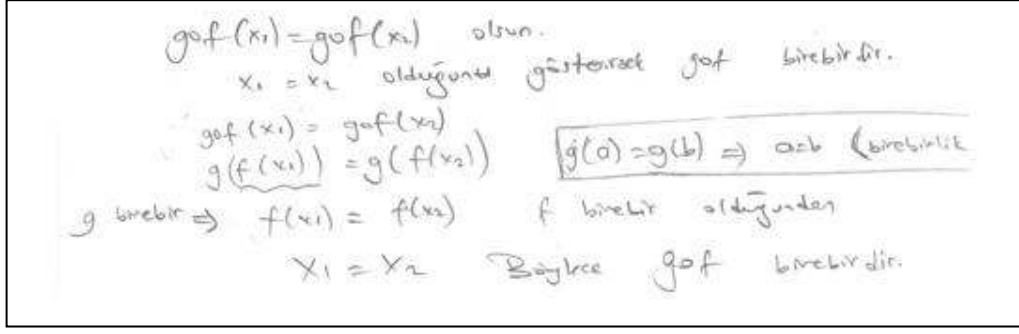 gof(x₁) = gof(x₂) olsun.
x₁ = x₂ olduğunu gösterirsek gof birebirdir.
gof(x₁) = gof(x₂)
g(f(x₁)) = g(f(x₂)) g(a) = g(b) ⇒ a=b (birebirlik
g birebir ⇒ f(x₁) = f(x₂) f birebir olduğundan
x₁ = x₂ Böylece gof birebirdir.